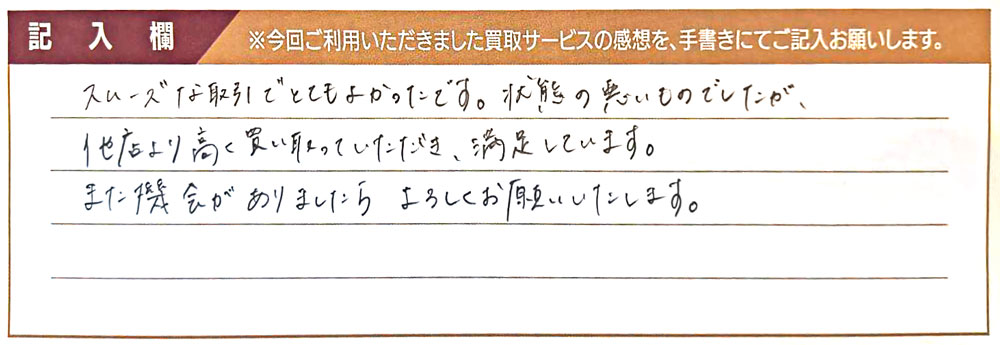 記入欄
※今回ご利用いただきました買取サービスの感想を、手書きにてご記入お願いします。
スムーズな取引でとてもよかったです。状態の悪いものでしたが、
他店より高く買い取っていただき、満足しています。
また機会がありましたら よろしくお願いいたします。